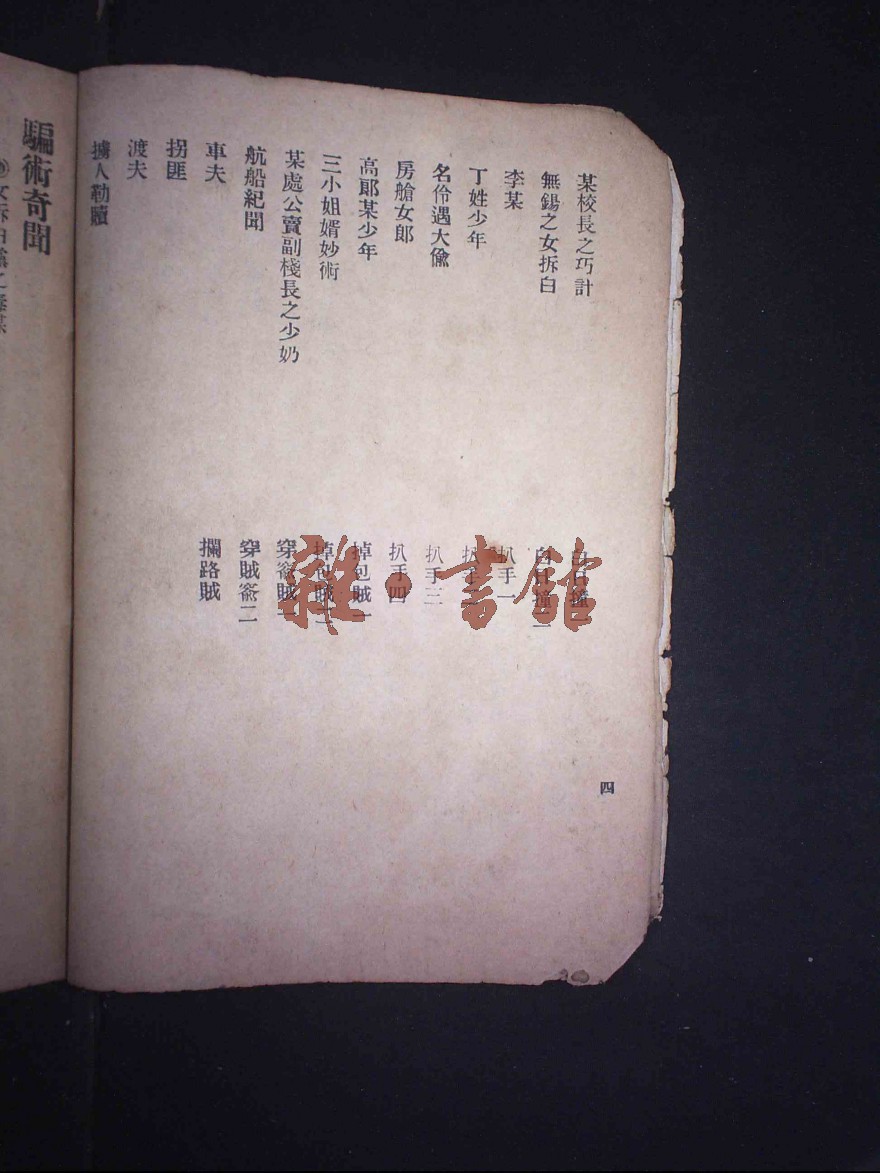 某校長之巧計
無錫之女拆白
李某
丁姓少年
名伶遇大儉
房艙女郎
高郿某少年
三小姐婿妙術
某處公賣副棧長之少奶
航船紀聞
車夫
拐匪
渡夫
擄人勒贖
白日撞一
白日撞二
扒手一
扒手二
扒手三
扒手四
掉包賊一
掉包賊二
穿窬賊一
穿賊窬二
攔路賊
四
騙術奇聞
雜·書館